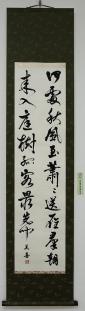 何處秋風至蕭々送雁羣朝
来入庭樹孤客最先聞